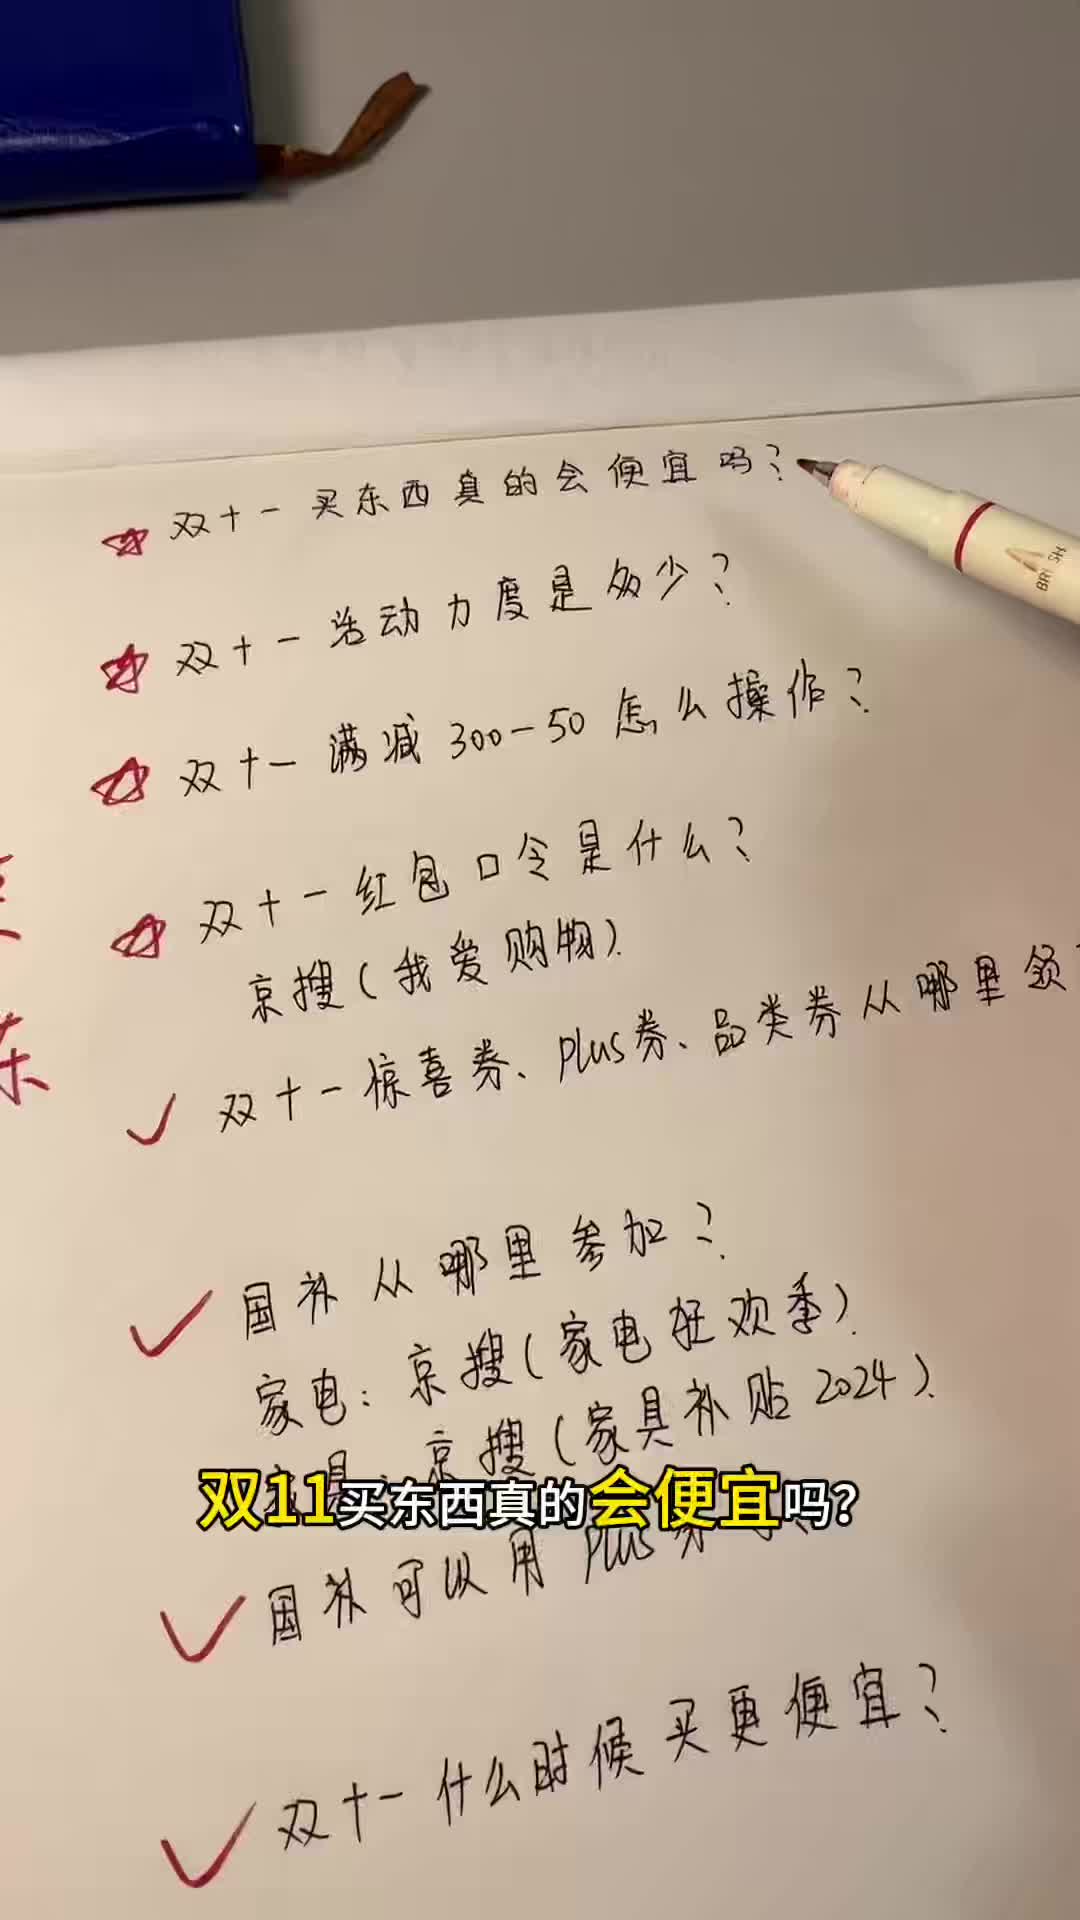 双十一买东西真的会便宜吗?
BRI SH
双十一活动力度是多少?
双十一满减300-50怎么操作?
双十一红包口令是什么?
京搜(我爱购物)
双十一惊喜券、Plus券、品类券从哪里领
东
国补从哪里参加?
家电:京搜(家电狂欢季)
京搜(家具补贴2024)
双11买东西真的会便宜吗?
国补可以用Plus券
双十一什么时候买更便宜?